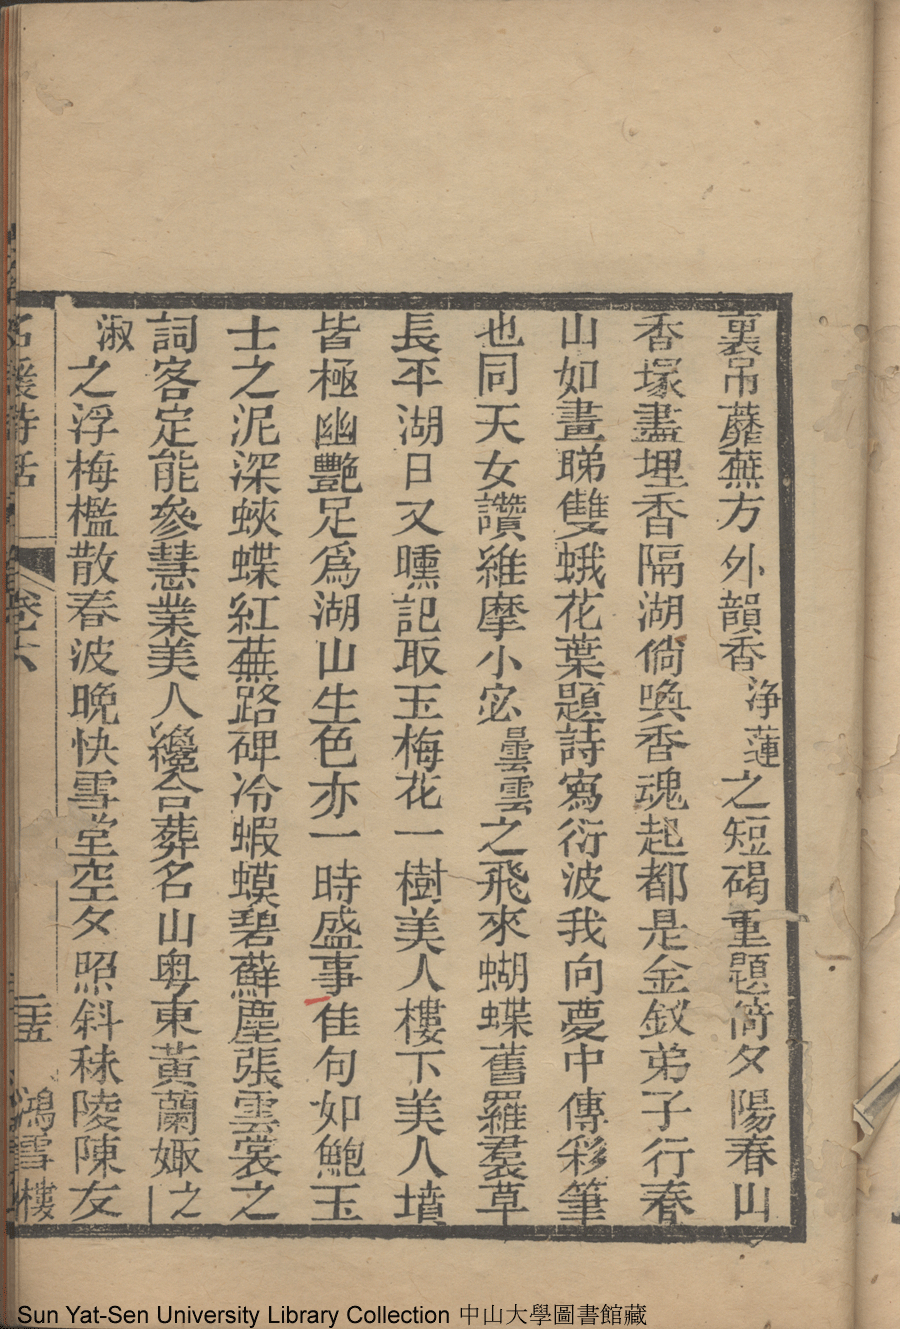 裏吊蘼蕪方外韻香淨蓮之短碣重題簡夕陽春山
香塚盡埋香隔湖倘喚香魂起都是金釵弟子行春
山如畫睇雙蛾花葉題詩寫衍波我向夢中傳彩筆
也同天女讚維摩小宓曇雲之飛來蝴蝶舊羅裙草
長平湖日又曛記取玉梅花一樹美人樓下美人墳
皆極幽艷足爲湖山生色亦一時盛事佳句如鮑玉
士之泥深蛺蝶紅蕪路碑冷蝦蟆碧蘚塵張雲裳之
詞客定能參慧業美人纔合葬名山粵東黃蘭娵之
淑之浮梅檻散春波晚快雪堂空夕照斜秣陵陳友
名媛詩話 卷六 二十五 鴻雪樓
Sun Yat-Sen University Library Collection 中山大學圖書館藏